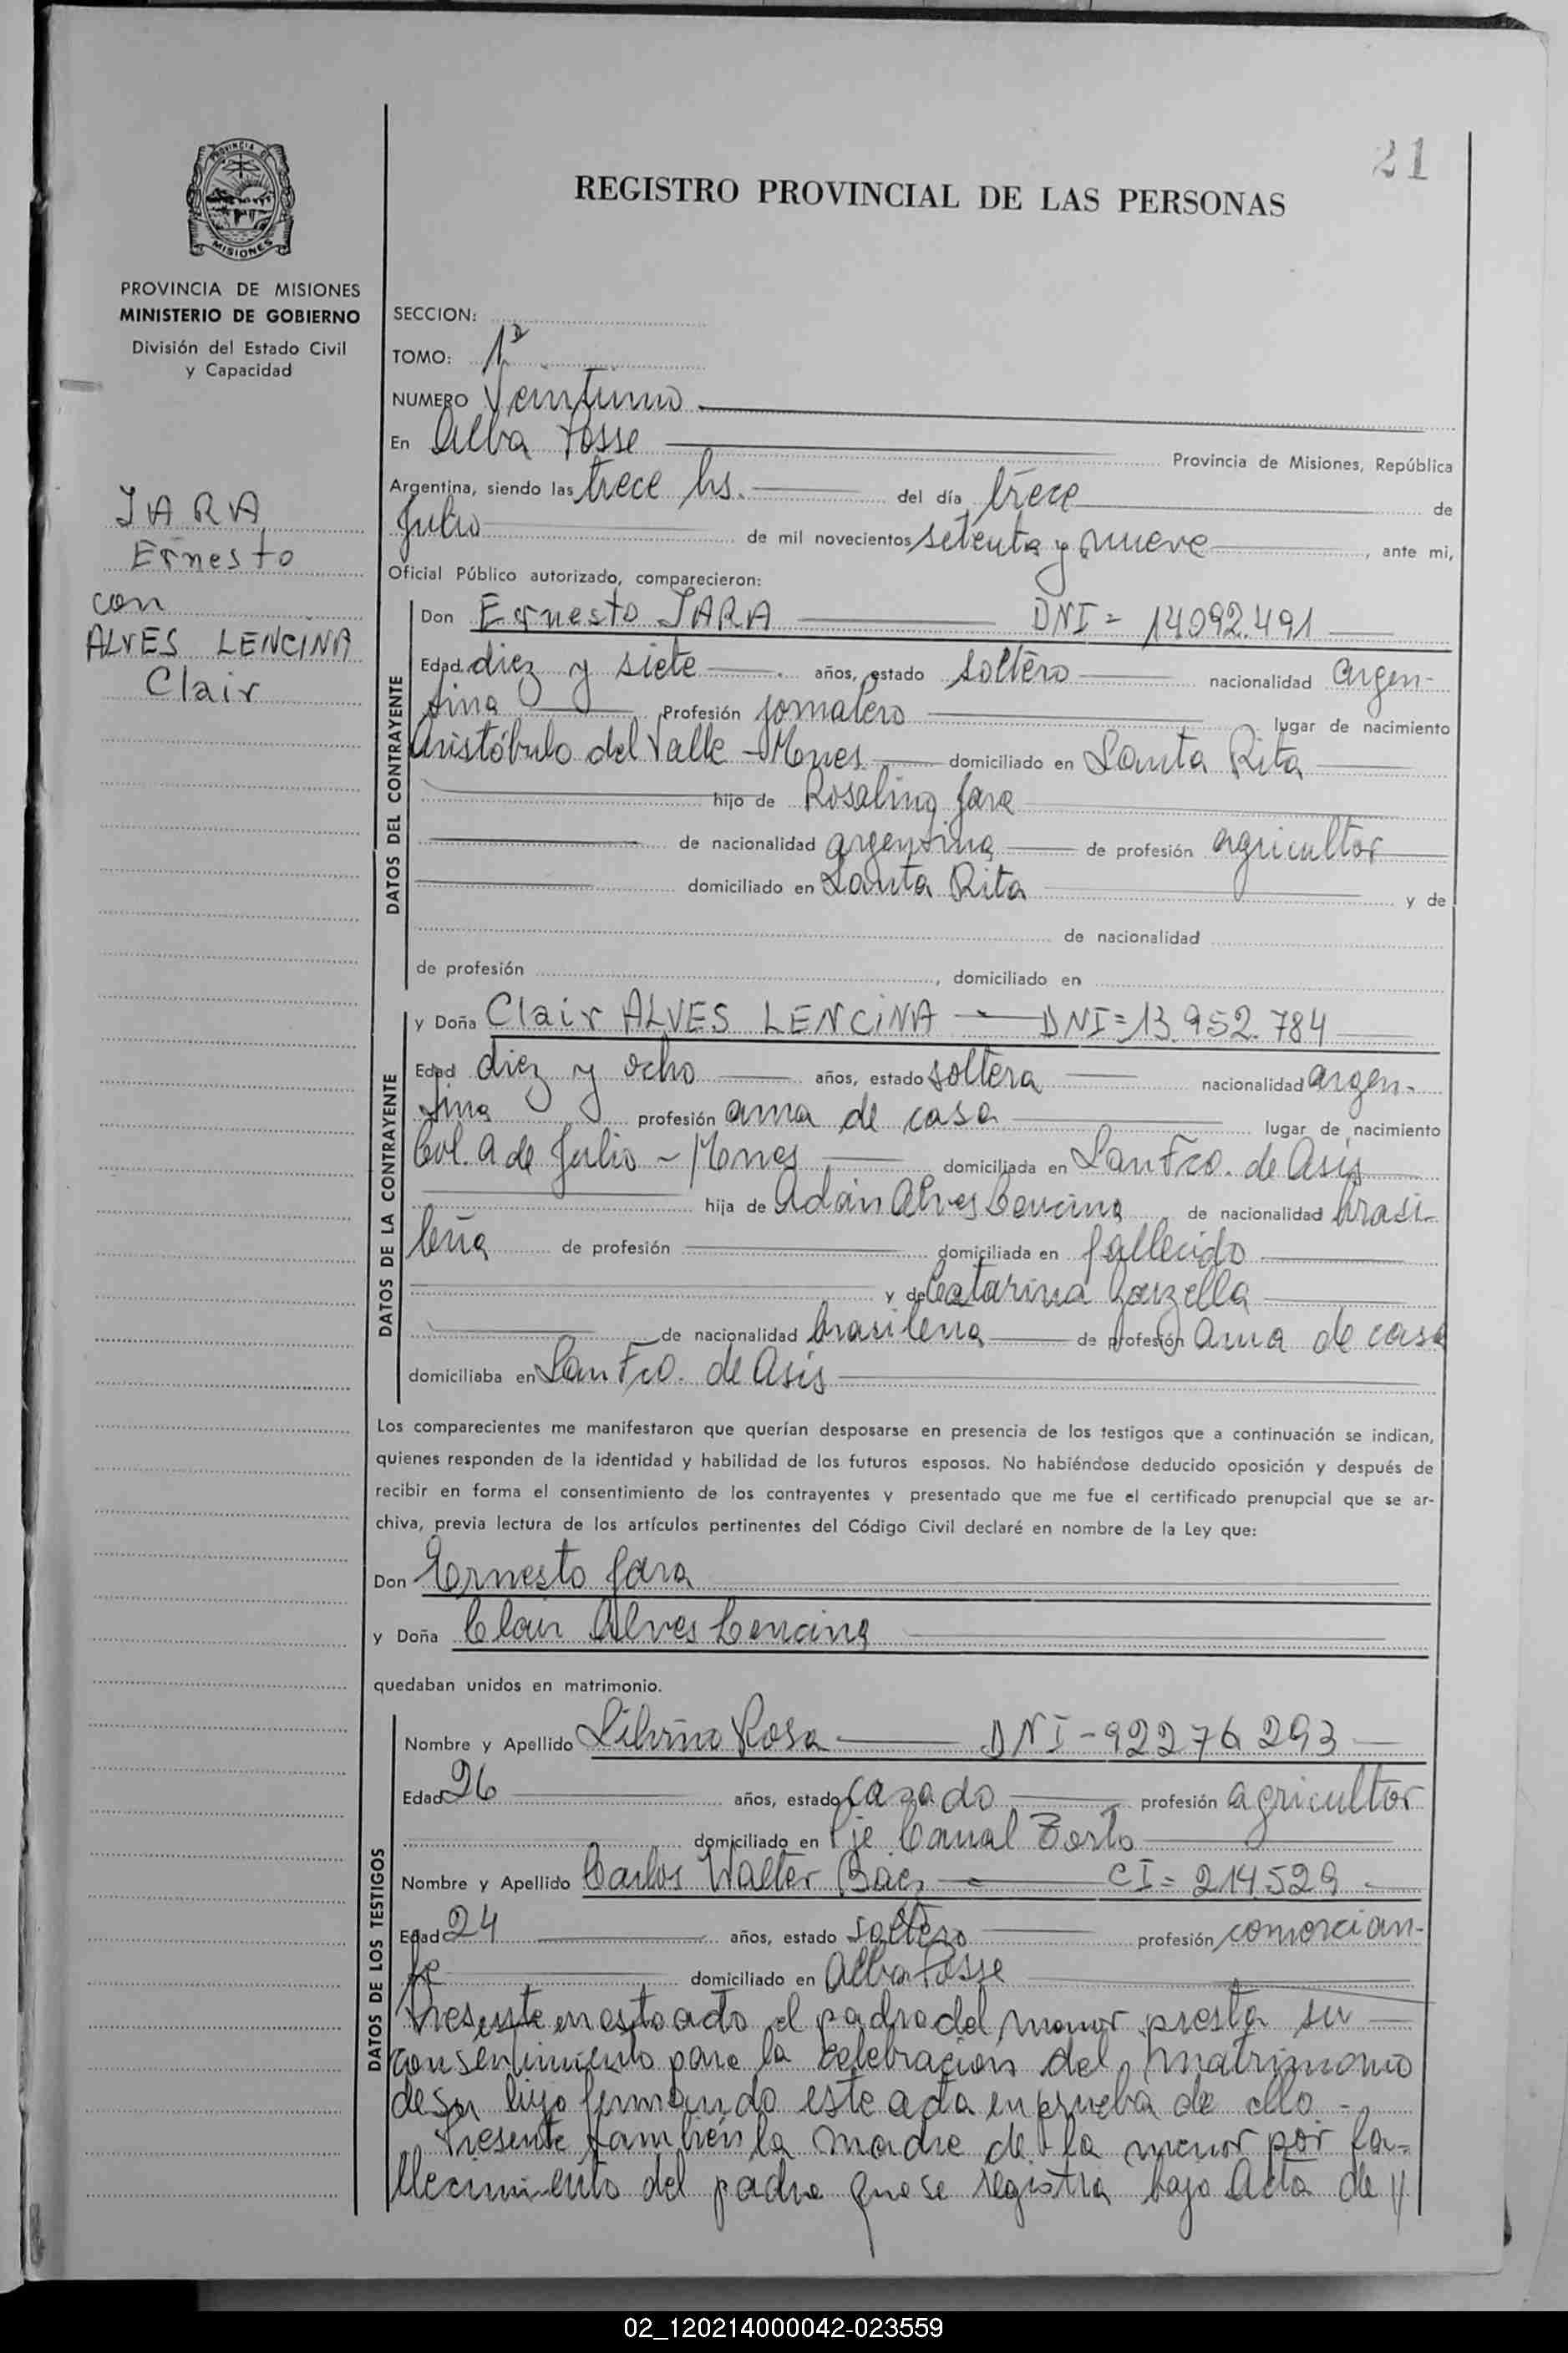 21
REGISTRO PROVINCIAL DE LAS PERSONAS
PROVINCIA DE MISIONES
MINISTERIO DE GOBIERNO
División del Estado Civil
y Capacidad
JARA
Ernesto
con
ALVES LENCINA
Clair
SECCION:
TOMO: 1º
NUMERO Veintiuno
En Alba Posse Provincia de Misiones, República
Argentina, siendo las trece hs. del día trece de
Julio de mil novecientos setenta y nueve, ante mi,
Oficial Público autorizado, comparecieron:
DATOS DEL CONTRAYENTE
Don Ernesto JARA DNI= 14092.491
Edad diez y siete años, estado soltero nacionalidad argen-
tina Profesión jornalero lugar de nacimiento
Aristóbulo del Valle - Mnes domiciliado en Santa Rita
hijo de Rosalino Jara
de nacionalidad argentina de profesión agricultor
domiciliado en Santa Rita y de
de nacionalidad
de profesión , domiciliado en
DATOS DE LA CONTRAYENTE
y Doña Clair ALVES LENCINA DNI=13.952.784
Edad diez y ocho años, estado soltera nacionalidad argen-
tina profesión ama de casa lugar de nacimiento
Col. 9 de Julio - Mnes domiciliada en San Fco. de Asis
hija de Adán Alves Lencina de nacionalidad brasi-
leña de profesión domiciliada en fallecido
y de Catarina
de nacionalidad brasilena de profesión ama de casa
domiciliaba en San Fco. de Asis
Los comparecientes me manifestaron que querían desposarse en presencia de los testigos que a continuación se indican,
quienes responden de la identidad y habilidad de los futuros esposos. No habiéndose deducido oposición y después de
recibir en forma el consentimiento de los contrayentes y presentado que me fue el certificado prenupcial que se ar-
chiva, previa lectura de los artículos pertinentes del Código Civil declaré en nombre de la Ley que:
Don Ernesto Jara
y Doña Clair Alves Lencina
quedaban unidos en matrimonio.
DATOS DE LOS TESTIGOS
Nombre y Apellido Silvino Rosa DNI-92276293
Edad 26 años, estado casado profesión agricultor
domiciliado en Pje Canal Torto
Nombre y Apellido Carlos Walter CI= 214.529
Edad 24 años, estado soltero profesión comercian-
te domiciliado en Alba Posse
Presente en este acto el padre del menor presta su
consentimiento para la celebración del matrimonio
de su hijo firmando este acta en prueba de ello.-
Presente también la madre de la menor por fa-
llecimiento del padre que se registra bajo Acta de //
02_120214000042-023559